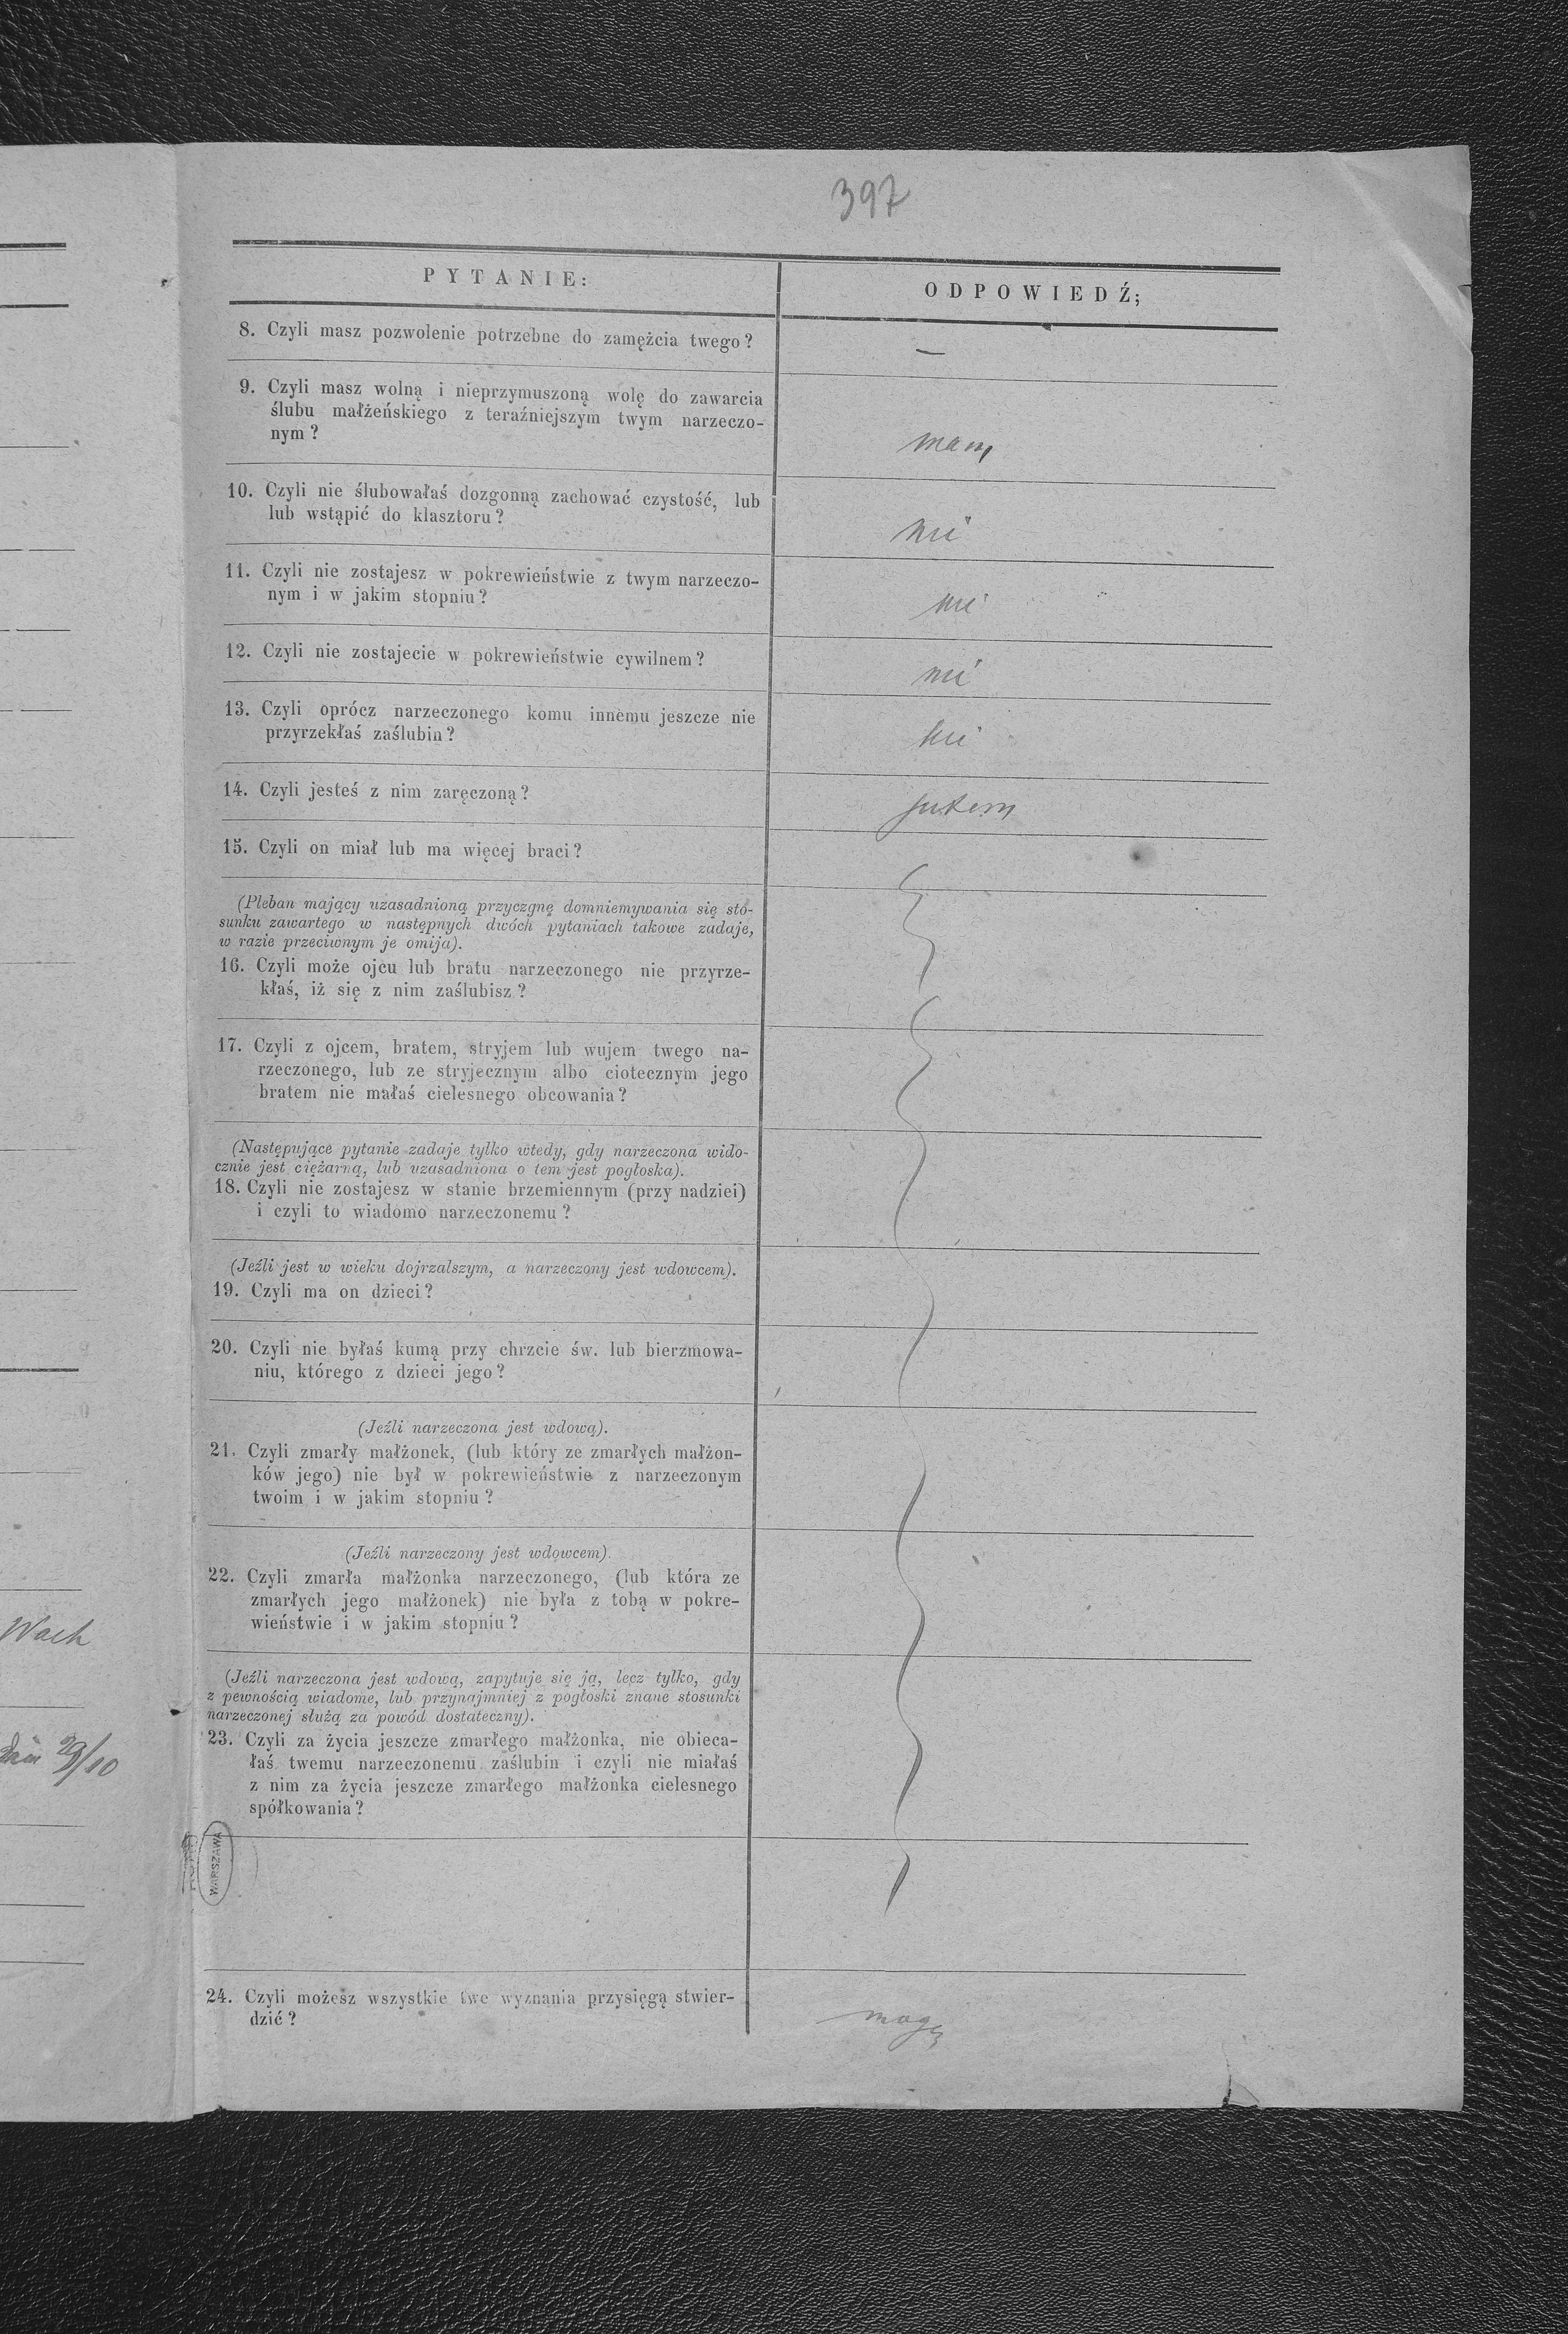 397
PYTANIE:
ODPOWIEDŹ;
8. Czyli masz pozwolenie potrzebne do zamężcia twego?
—
9. Czyli masz wolną i nieprzymuszoną wolę do zawarcia
ślubu małżeńskiego z teraźniejszym twym narzeczo-
nym?
mam
10. Czyli nie ślubowałaś dozgonną zachować czystość, lub
lub wstąpić do klasztoru?
nie
11. Czyli nie zostajesz w pokrewieństwie z twym narzeczo-
nym i w jakim stopniu?
nie
12. Czyli nie zostajecie w pokrewieństwie cywilnem?
nie
13. Czyli oprócz narzeczonego komu innemu jeszcze nie
przyrzekłaś zaślubin?
nie
14. Czyli jesteś z nim zaręczoną?
jestem
15. Czyli on miał lub ma więcej braci?
(Pleban mający uzasadnioną przyczgnę domniemywania się sto-
sunku zawartego w następnych dwóch pytaniach takowe zadaje,
w razie przeciwnym je omija).
16. Czyli może ojcu lub bratu narzeczonego nie przyrze-
kłaś, iż się z nim zaślubisz?
17. Czyli z ojcem, bratem, stryjem lub wujem twego na-
rzeczonego, lub ze stryjecznym albo ciotecznym jego
bratem nie małaś cielesnego obcowania?
(Następujące pytanie zadaje tylko wtedy, gdy narzeczona wido-
cznie jest ciężarną, lub uzasadniona o tem jest pogłoska).
18. Czyli nie zostajesz w stanie brzemiennym (przy nadziei)
i czyli to wiadomo narzeczonemu?
(Jeźli jest w wieku dojrzalszym, a narzeczony jest wdowcem).
19. Czyli ma on dzieci?
20. Czyli nie byłaś kumą przy chrzcie św. lub bierzmowa-
niu, którego z dzieci jego?
(Jeźli narzeczona jest wdową).
21. Czyli zmarły małżonek, (lub który ze zmarłych małżon-
ków jego) nie był w pokrewieństwie z narzeczonym
twoim i w jakim stopniu?
(Jeźli narzeczony jest wdowcem).
22. Czyli zmarła małżonka narzeczonego, (lub która ze
zmarłych jego małżonek) nie była z tobą w pokre-
wieństwie i w jakim stopniu?
Wach
(Jeźli narzeczona jest wdową, zapytuje się ją, lecz tylko, gdy
z pewnością wiadome, lub przynajmniej z pogłoski znane stosunki
narzeczonej służą za powód dostateczny).
23. Czyli za życia jeszcze zmarłego małżonka, nie obieca-
łaś twemu narzeczonemu zaślubin i czyli nie miałaś
z nim za życia jeszcze zmarłego małżonka cielesnego
spółkowania?
29/10
WARSZAWA
24. Czyli możesz wszystkie twe wyznania przysięgą stwier-
dzić?
mogę